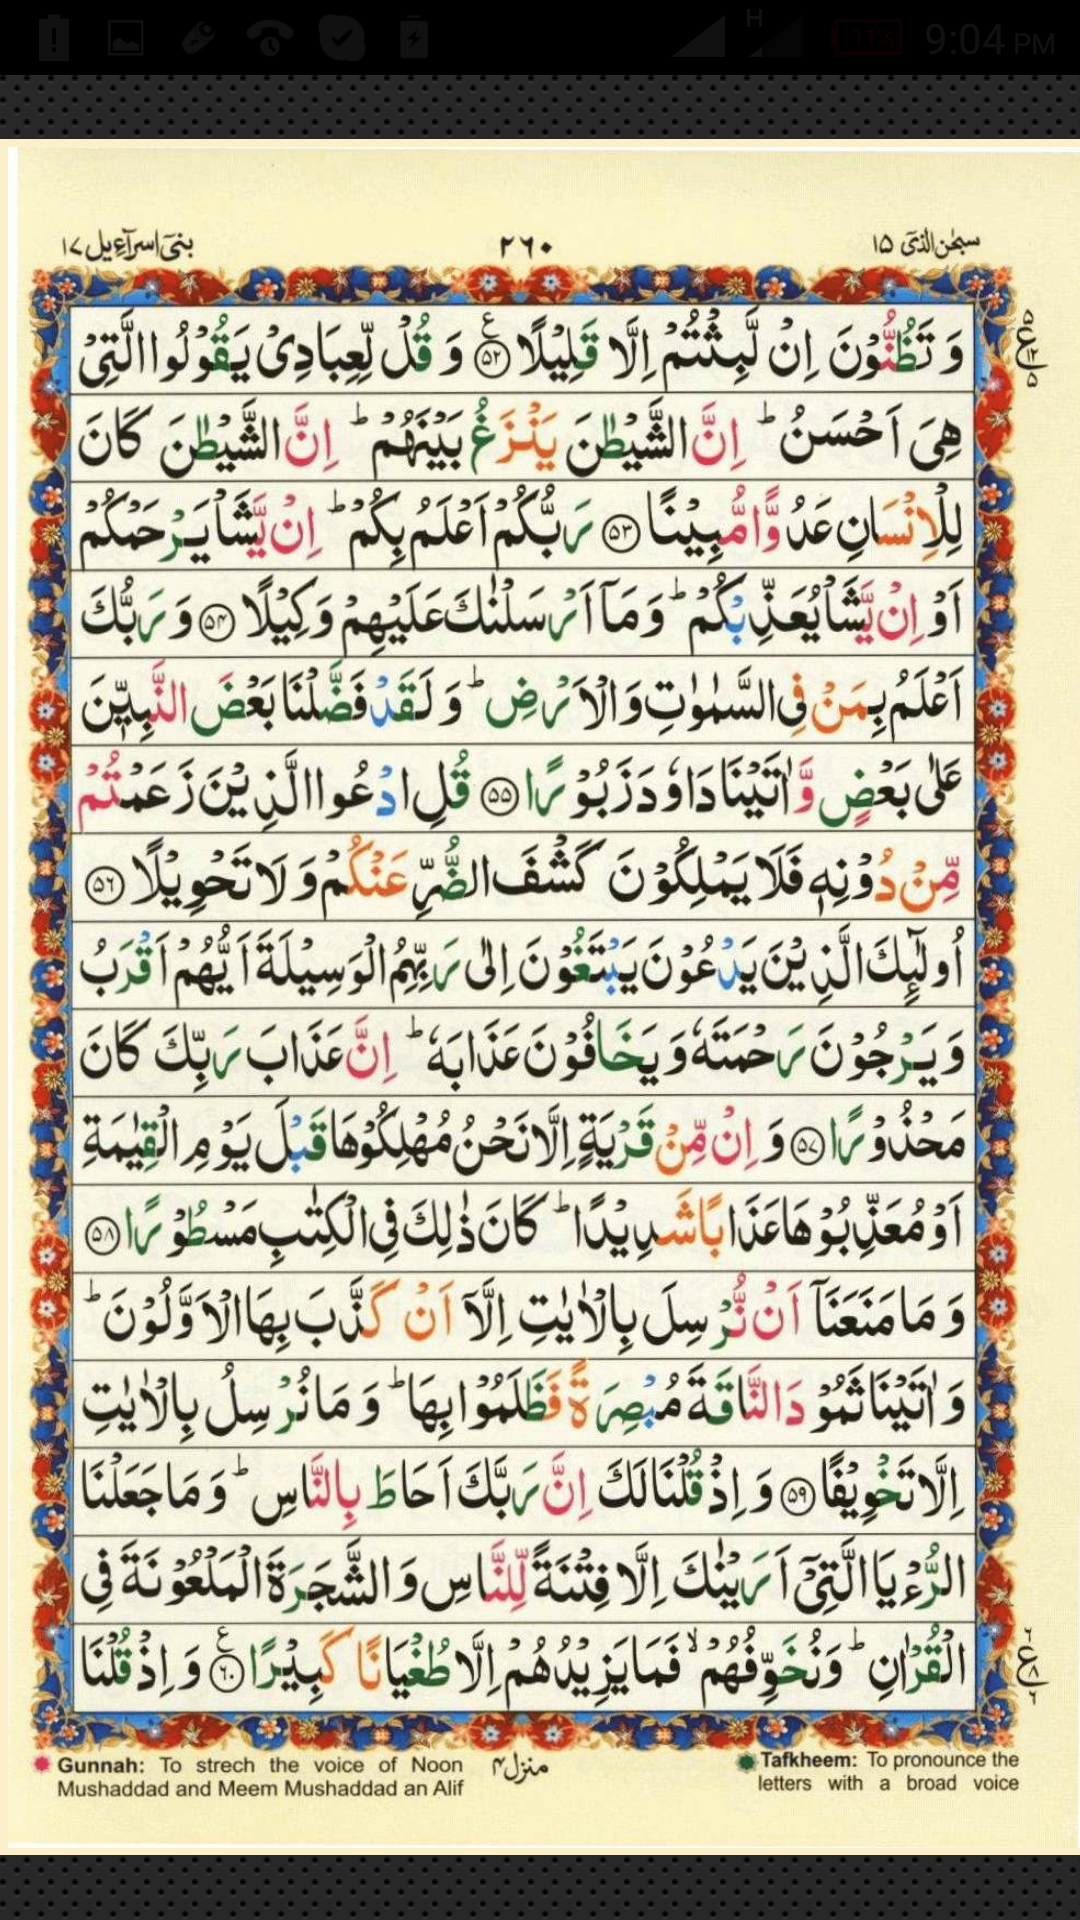 H 11% 9:04 PM
سبحٰن الذی ۱۵ ۲٦۰ بنیٓ اسرآءیل ۱۷
وَ تَظُنُّوْنَ اِنْ لَّبِثْتُمْ اِلَّا قَلِیْلًا ﴿۵۲﴾ وَ قُلْ لِّعِبَادِیْ یَقُوْلُوا الَّتِیْ
هِیَ اَحْسَنُ ؕ اِنَّ الشَّیْطٰنَ یَنْزَغُ بَیْنَهُمْ ؕ اِنَّ الشَّیْطٰنَ كَانَ
لِلْاِنْسَانِ عَدُوًّا مُّبِیْنًا ﴿۵۳﴾ رَبُّكُمْ اَعْلَمُ بِكُمْ ؕ اِنْ یَّشَاْ یَرْحَمْكُمْ
اَوْ اِنْ یَّشَاْ یُعَذِّبْكُمْ ؕ وَ مَاۤ اَرْسَلْنٰكَ عَلَیْهِمْ وَكِیْلًا ﴿۵۴﴾ وَ رَبُّكَ
اَعْلَمُ بِمَنْ فِی السَّمٰوٰتِ وَ الْاَرْضِ ؕ وَ لَقَدْ فَضَّلْنَا بَعْضَ النَّبِیّٖنَ
عَلٰی بَعْضٍ وَّ اٰتَیْنَا دَاوٗدَ زَبُوْرًا ﴿۵۵﴾ قُلِ ادْعُوا الَّذِیْنَ زَعَمْتُمْ
مِّنْ دُوْنِهٖ فَلَا یَمْلِكُوْنَ كَشْفَ الضُّرِّ عَنْكُمْ وَ لَا تَحْوِیْلًا ﴿۵۶﴾
اُولٰٓىِٕكَ الَّذِیْنَ یَدْعُوْنَ یَبْتَغُوْنَ اِلٰی رَبِّهِمُ الْوَسِیْلَةَ اَیُّهُمْ اَقْرَبُ
وَ یَرْجُوْنَ رَحْمَتَهٗ وَ یَخَافُوْنَ عَذَابَهٗ ؕ اِنَّ عَذَابَ رَبِّكَ كَانَ
مَحْذُوْرًا ﴿۵۷﴾ وَ اِنْ مِّنْ قَرْیَةٍ اِلَّا نَحْنُ مُهْلِكُوْهَا قَبْلَ یَوْمِ الْقِیٰمَةِ
اَوْ مُعَذِّبُوْهَا عَذَابًا شَدِیْدًا ؕ كَانَ ذٰلِكَ فِی الْكِتٰبِ مَسْطُوْرًا ﴿۵۸﴾
وَ مَا مَنَعَنَاۤ اَنْ نُّرْسِلَ بِالْاٰیٰتِ اِلَّاۤ اَنْ كَذَّبَ بِهَا الْاَوَّلُوْنَ ؕ
وَ اٰتَیْنَا ثَمُوْدَ النَّاقَةَ مُبْصِرَةً فَظَلَمُوْا بِهَا ؕ وَ مَا نُرْسِلُ بِالْاٰیٰتِ
اِلَّا تَخْوِیْفًا ﴿۵۹﴾ وَ اِذْ قُلْنَا لَكَ اِنَّ رَبَّكَ اَحَاطَ بِالنَّاسِ ؕ وَ مَا جَعَلْنَا
الرُّءْیَا الَّتِیْۤ اَرَیْنٰكَ اِلَّا فِتْنَةً لِّلنَّاسِ وَ الشَّجَرَةَ الْمَلْعُوْنَةَ فِی
الْقُرْاٰنِ ؕ وَ نُخَوِّفُهُمْ ۙ فَمَا یَزِیْدُهُمْ اِلَّا طُغْیَانًا كَبِیْرًا ﴿۶۰﴾ وَ اِذْ قُلْنَا
Gunnah: To strech the voice of Noon
Mushaddad and Meem Mushaddad an Alif
منزل ۴
Tafkheem: To pronounce the
letters with a broad voice